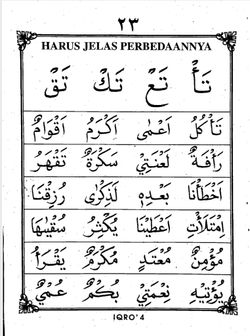 ٢٣
HARUS JELAS PERBEDAANNYA
تَأْ تَعْ تَكْ تَقْ
تَأْكُلُ اَعْمٰى اَكْرَمُ اَقْوَامٌ
رَأْفَةٌ لَعْنَتِيْ سَكْرَةٌ تَقْهَرْ
اَخْطَأْنَا بَعْدِهٖ لَذِكْرٰى رُزِقْنَا
اِمْتَلَأْتِ اَعْطَيْنَا يُكْثِرُ سُقْيٰهَا
مُؤْمِنٌ مُعْتَدٍ مُكْرَمٌ يَقْرَأُ
يُؤْتِيْهِ نِعْمَتِيْ بُكْمٌ عُمْيٌ
IQRO' 4